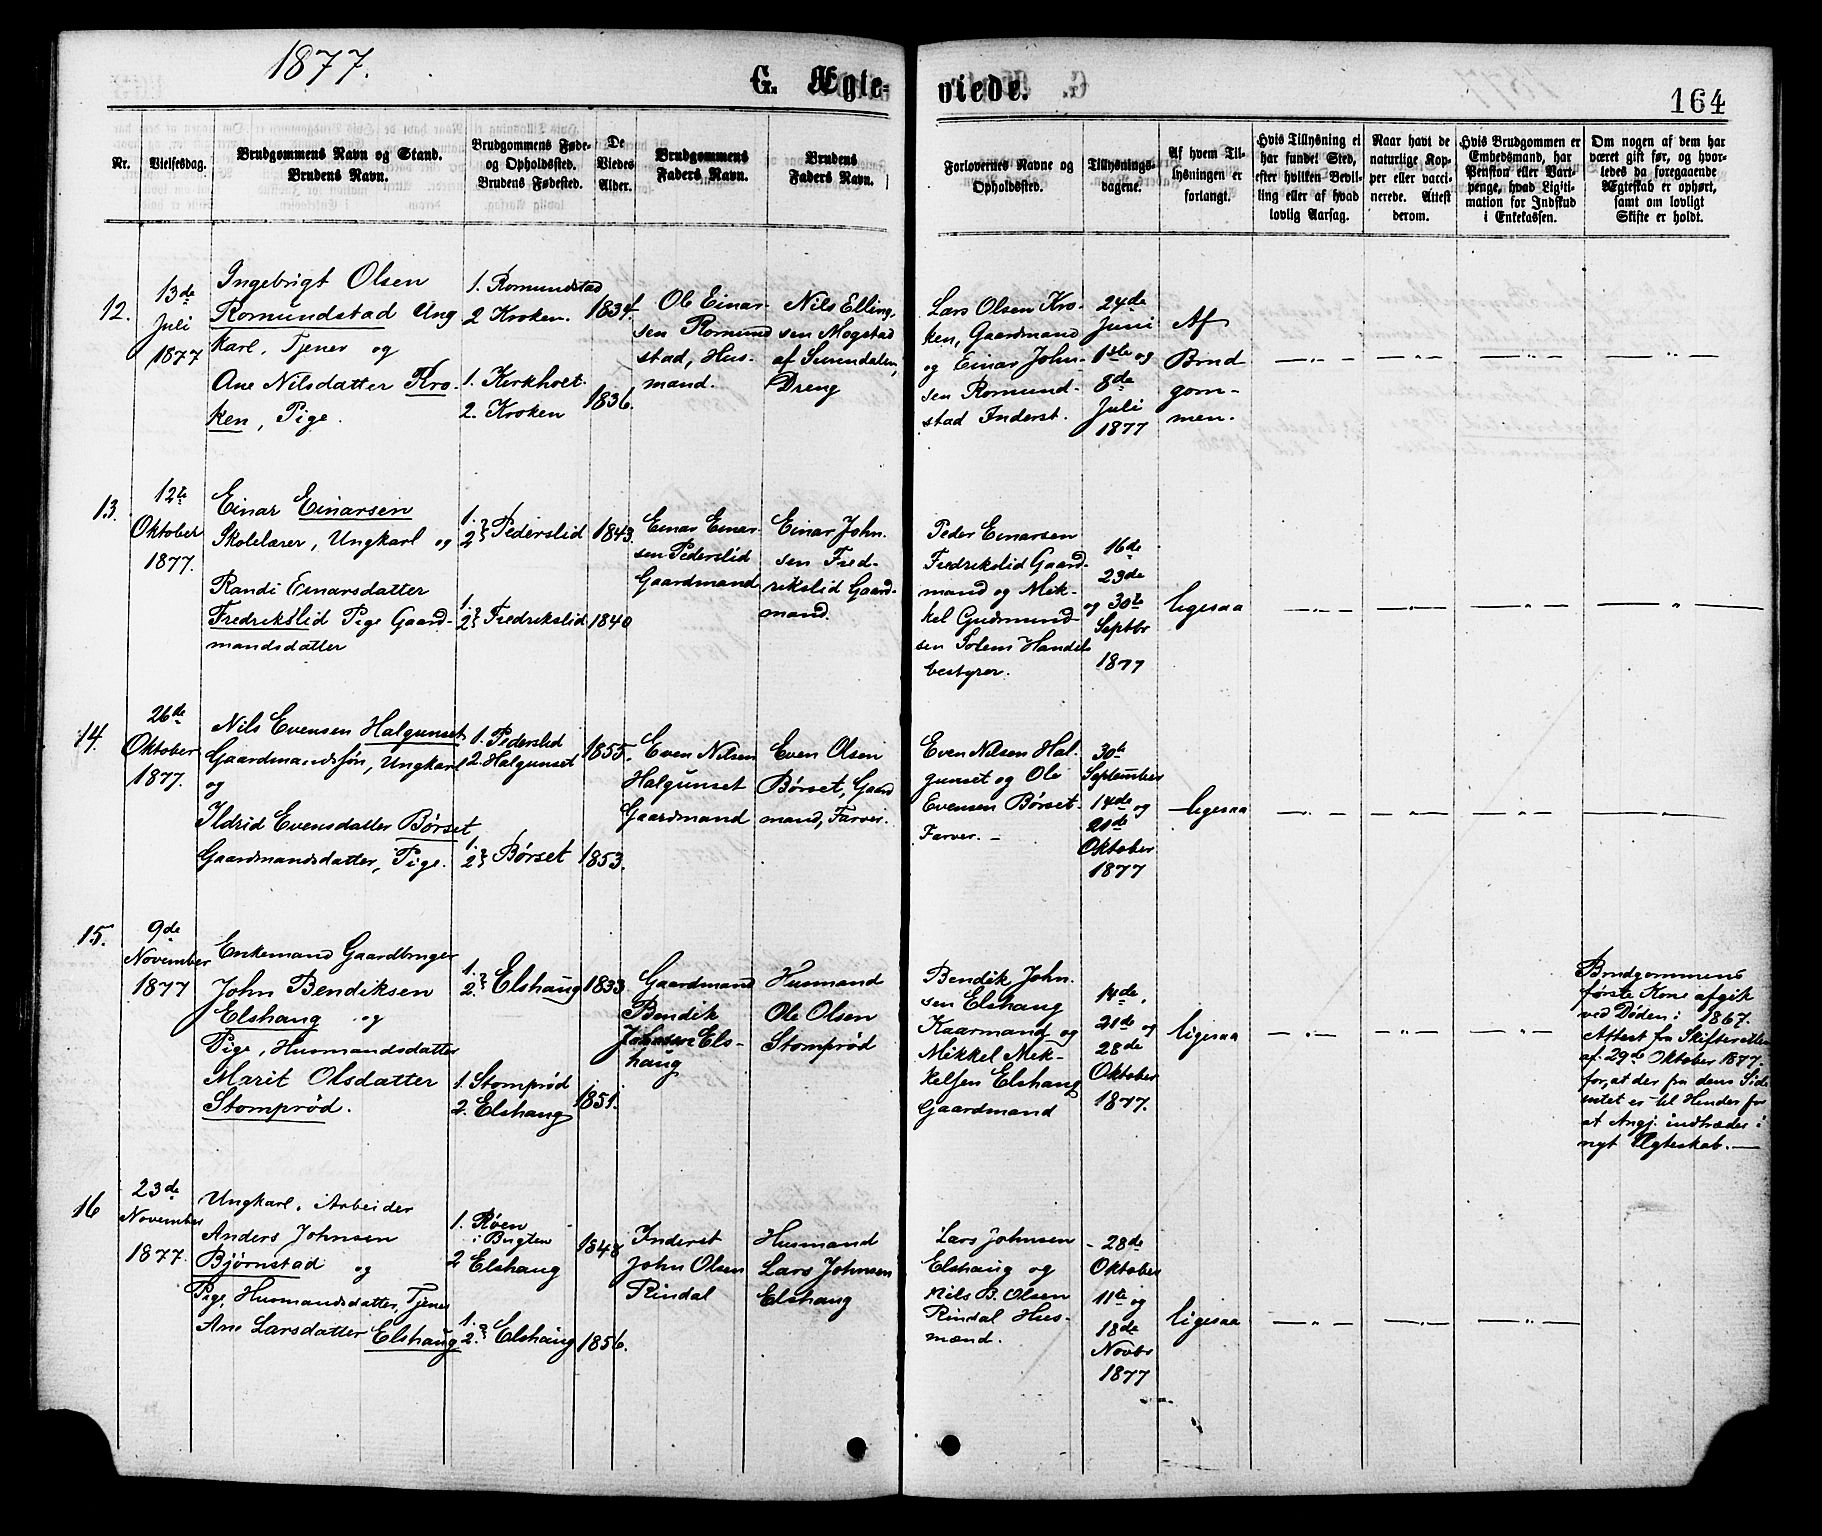 1877.
G. Ægte-
viede.
164
Nr.
Vielsesdag.
Brudgommens Navn og Stand.
Brudens Navn.
Brudgommens Føde-
og Opholdssted.
Brudens Fødested.
De
Viedes
Alder.
Brudgommens
Faders Navn.
Brudens
Faders Navn.
Forlovernes Navne og
Opholdssted.
Tillysnings-
dagene.
Af hvem Til-
lysningen er
forlangt.
Hvis Tillysning ei
har fundet Sted,
efter hvilken Bevil-
ling eller af hvad
lovlig Aarsag.
Naar havt de
naturlige Kop-
per eller vacci-
nerede. Attest
derom.
Hvis Brudgommen er
Embedsmand, har
Pension eller Vart-
penge, hvad Ligiti-
mation for Indskud
i Enkekassen.
Om nogen af dem har
været gift før, og hvor-
ledes da foregaaende
Ægteskab er ophørt,
samt om lovligt
Skifte er holdt.
12.
13de
Juli
1877
Ingebrigt Olsen
Romundstad Ung
karl, Tjener og
Ane Nilsdatter Kro-
ken, Pige.
1. Romundstad
2 Kroken.
1. Kirkholt.
2. Kroken
1834.
1836.
Ole Einar-
sen Romund
stad, Hus-
mand.
Nils Elling-
sen Mogstad
af Surendalen,
Dreng
Lars Olsen Kro-
ken, Gaardmand
og Einar John-
sen Romund-
stad Inderst.
24de
Juni
1ste og
8de
Juli
1877
Af
Brud
gom-
men.
13.
12te
Oktober
1877.
Einar Einarsen
Skolelærer, Ungkarl og
Randi Einarsdatter
Fredrikslid Pige Gaard-
mandsdatter
1.
2. Pederslid
1.
2. Fredrikslid
1843.
1840
Einar Einar-
sen Pederslid
Gaardmand
Einar John-
sen Fred-
rikslid Gaard-
mand.
Peder Einarsen
Fredrikslid Gaard-
mand og Mik-
kel Gudmund-
sen Solem Handels
bestyrer.
16de
23de
og 30te
Septbr
1877
ligesaa
14.
26de
Oktober
1877.
Nils Evensen Halgunset
Gaardmandssøn, Ungkarl
og
Ildrid Evensdatter Børset
Gaardmandsdatter, Pige.
1. Pederslid
2. Halgunset
1.
2. Børset
1855.
1853.
Even Nilsen
Halgunset
Gaardmand
Even Olsen
Børset, Gaard
mand, Farver.
Even Nilsen Hal-
gunset og Ole
Evensen Børset
Farver. –
30te
September
14de og
21de
Oktober
1877
ligesaa
15.
9de
November
1877
Enkemand Gaardbruger
John Bendiksen
Elshaug og
Pige, Husmandsdatter
Marit Olsdatter
Stomprød.
1.
2. Elshaug
1. Stomprød
2. Elshaug
1833
1851.
Gaardmand
Bendik
Johnsen Els-
haug
Husmand
Ole Olsen
Stomprød
Bendik John-
sen Elshaug
Kaarmand og
Mikkel Mik-
kelsen Elshaug
Gaardmand
14de,
21de og
28de
Oktober
1877.
ligesaa
Brudgommens
første Kone afgik
ved Døden i 1867.
Attest fra Skifteretten
af 29de Oktober 1877
for, at der fra dens Side
intet er til Hinder for
at Angj. indtræder i
nyt Ægteskab. —
16
23de
November
1877.
Ungkarl, Arbeider
Anders Johnsen
Bjørnstad og
Pige, Husmandsdatter, Tjener
Ane Larsdatter Elshaug
1. Røen
i Bugten
2 Elshaug
1.
2. Elshaug
1848
1856.
Inderst
John Olsen
Rindal
Husmand
Lars Johnsen
Elshaug
Lars Johnsen
Elshaug og
Nils B. Olsen
Rindal Hus-
mænd.
28de
Oktober
11te og
18de
Novbr
1877
ligesaa